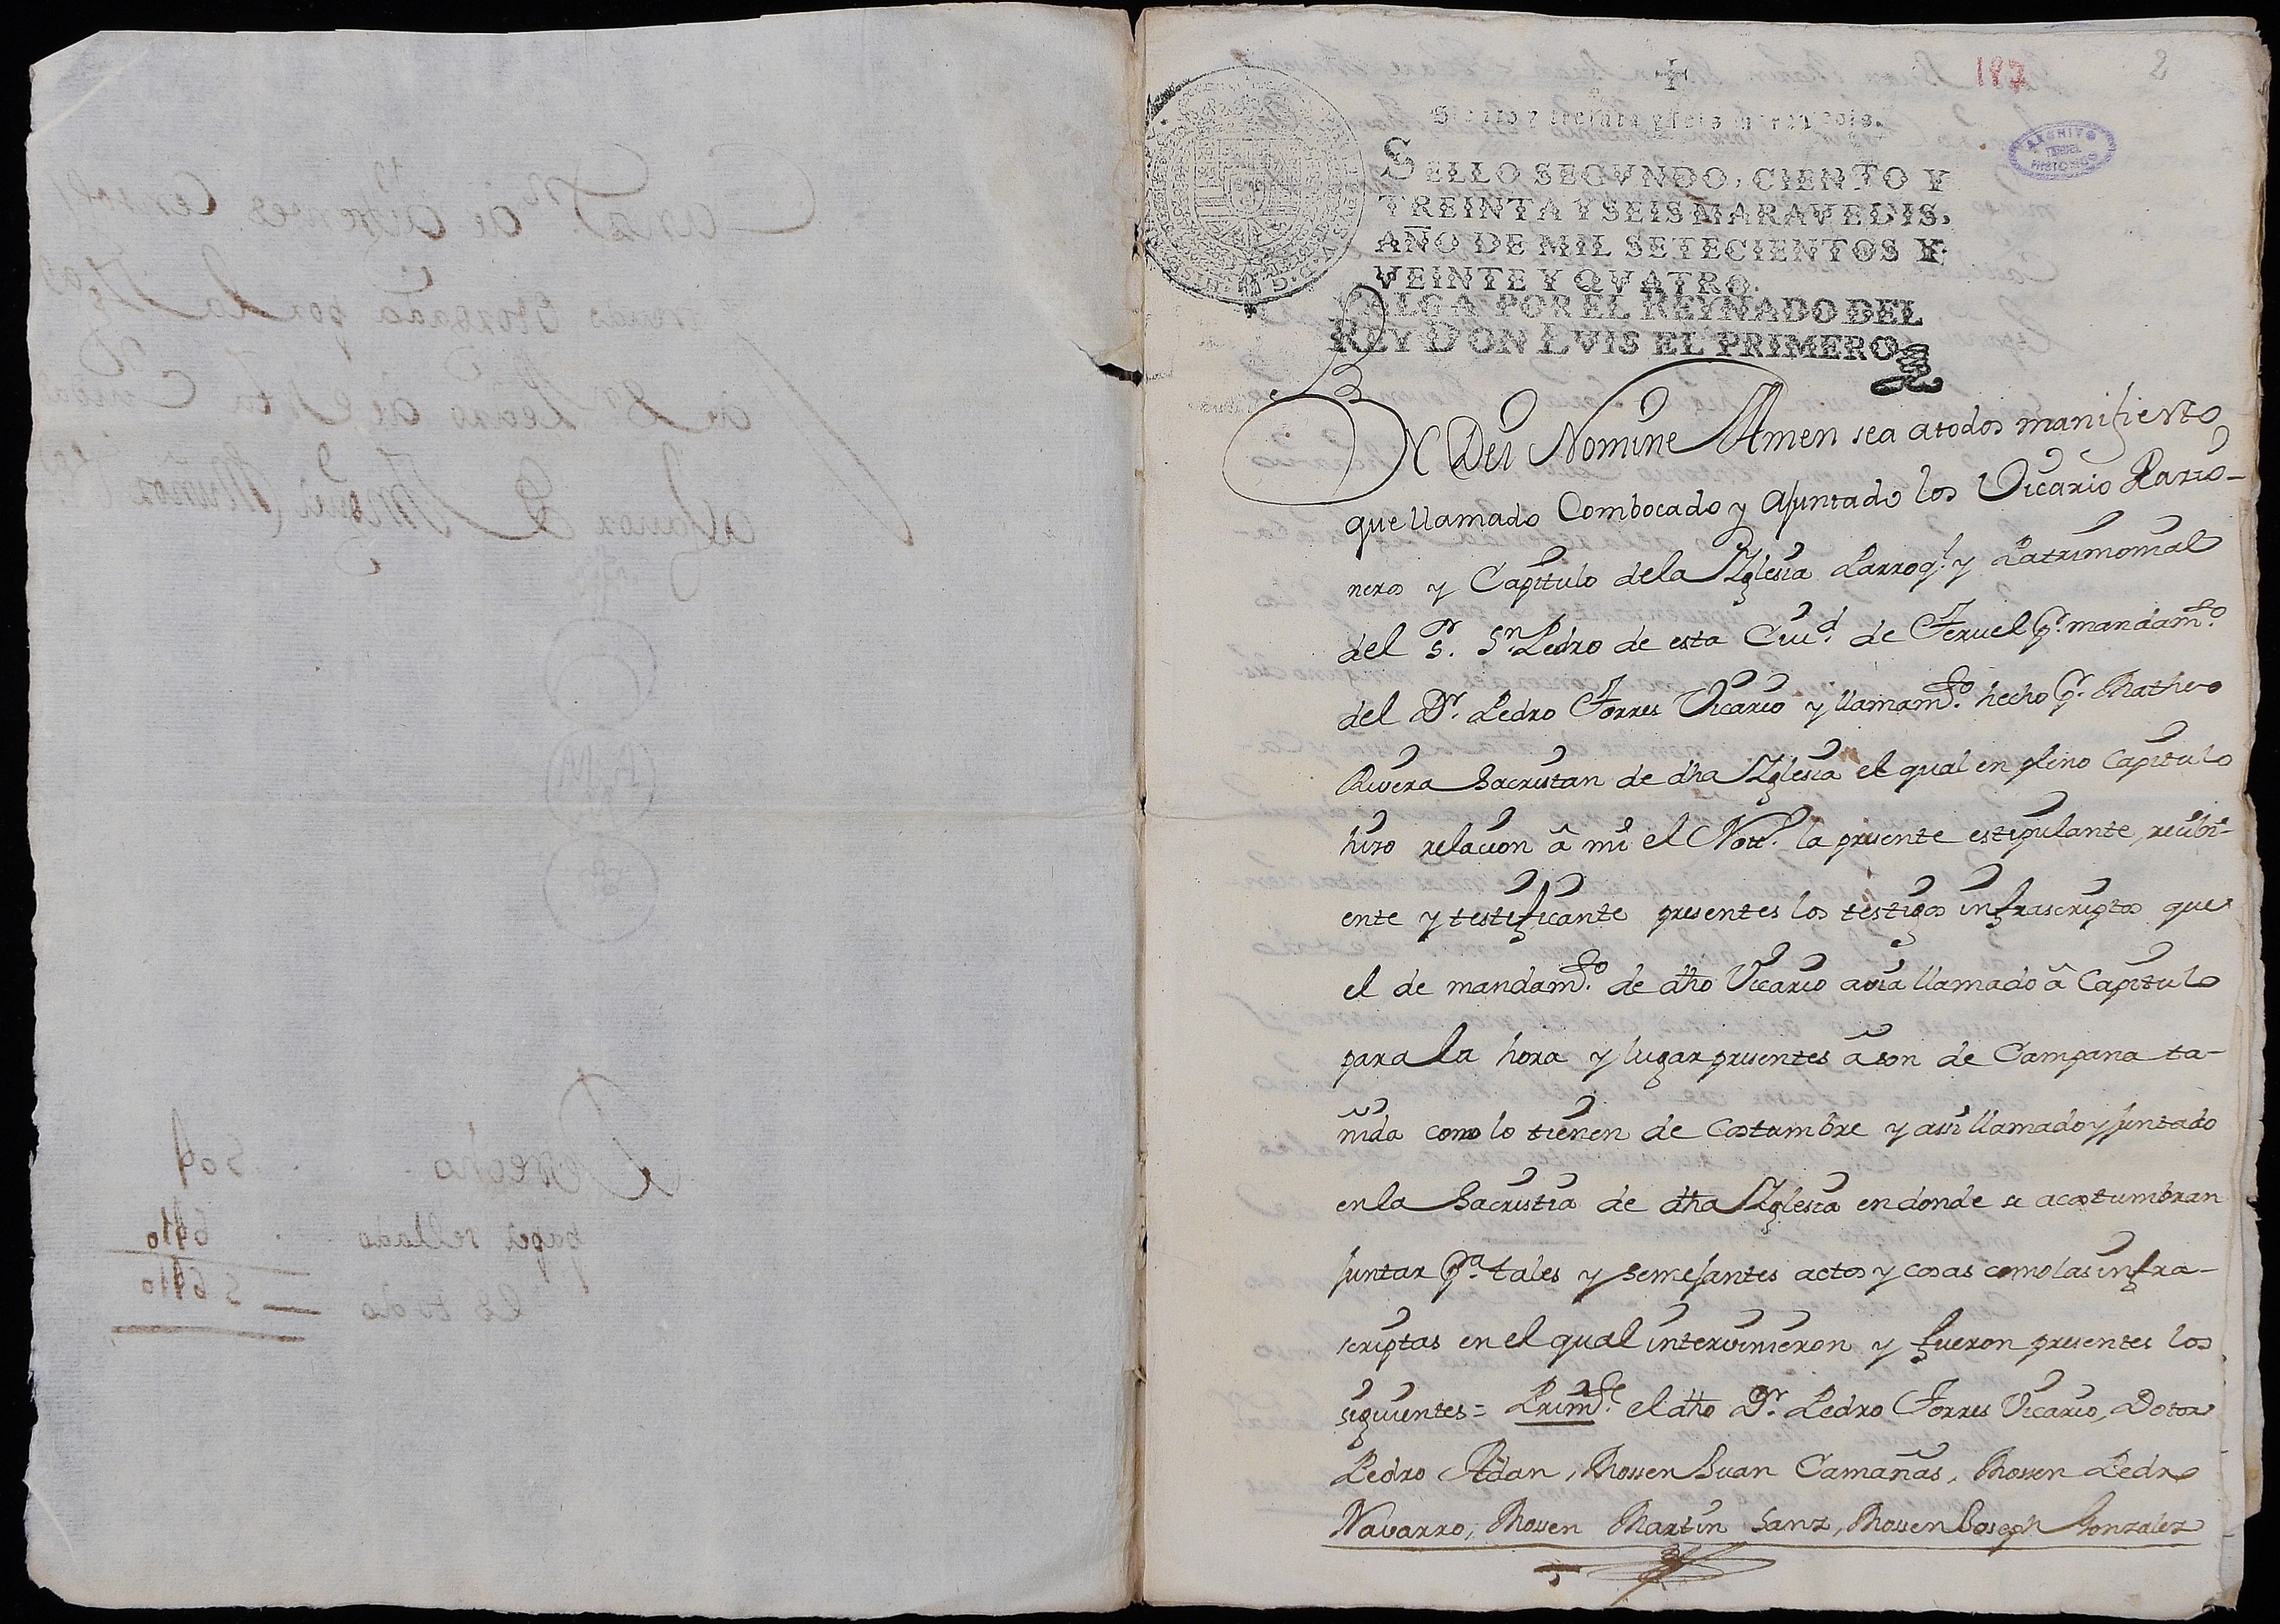 187
2
ARCHIVO
TERUEL
HISTORICO
Sello y treinta y seis maravedis.
SELLO SEGVNDO, CIENTO Y
TREINTA Y SEIS MARAVEDIS,
AÑO DE MIL SETECIENTOS Y
VEINTE Y QVATRO.
VALGA POR EL REYNADO DEL
REY DON LVIS EL PRIMERO
IN Dei Nomine Amen sea a todos manifiesto
que llamado Combocado y Ajuntado los Vicario Razio-
neros y Capitulo de la Yglesia Parroql. y Patrimonial
del Sr. Sn. Pedro de esta Ciud. de Teruel pr. mandamto.
del Dr. Pedro Torres Vicario y llamamto. hecho pr. Matheo
Rivera Sacristan de dha Yglesia el qual en pleno Capitulo
hizo relacion â mi el Nott. la presente estipulante, recibi-
ente y testificante presentes los testigos infrascriptos que
el de mandamto. de dho Vicario avia llamado â Capitulo
para la hora y lugar presentes â son de Campana ta-
ñida como lo tienen de Costumbre y assi llamado y Juntado
en la Sacristia de dha Yglesia en donde se acostumbran
Juntar pa. tales y semejantes actos y cosas como las infra-
scriptas en el qual intervinieron y fueron presentes los
siguientes = Primte. el dho Dr. Pedro Torres Vicario, Dotor
Pedro Adan, Mossen Juan Camañas, Mossen Pedro
Navarro, Mossen Martin Sanz, Mossen Joseph Gonzalez